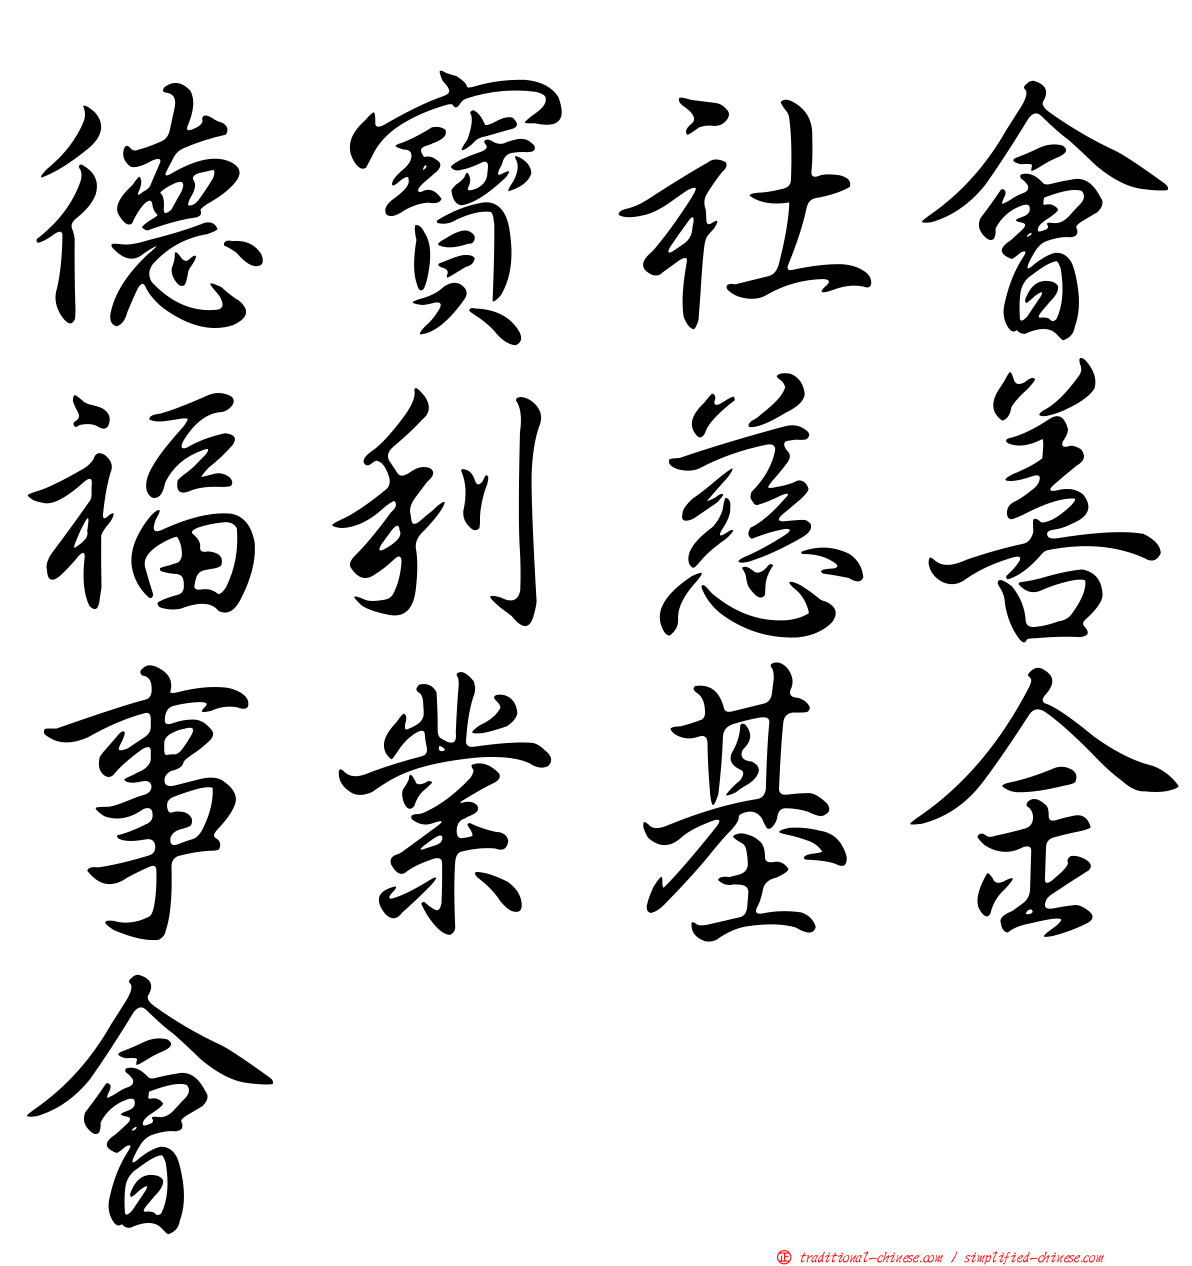 德寶社會
福利慈善
事業基金
會
正 traditional-chinese.com / simplified-chinese.com